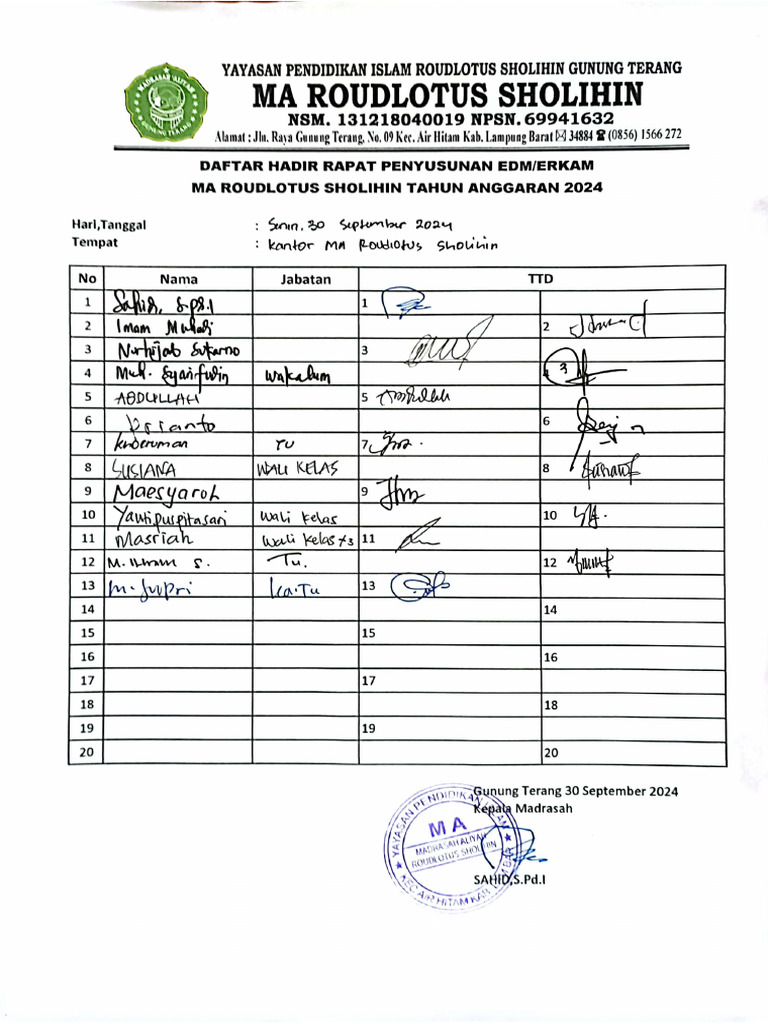 YAYASAN PENDIDIKAN ISLAM ROUDLOTUS SHOLIHIN GUNUNG TERANG
MA ROUDLOTUS SHOLIHIN
NSM. 131218040019 NPSN. 69941632
Alamat : Jln. Raya Gunung Terang, No. 09 Kec. Air Hitam Kab. Lampung Barat ✉ 34884 ☎ (0856) 1566 272
MADRASAH ALIYAH
GUNUNG TERANG
DAFTAR HADIR RAPAT PENYUSUNAN EDM/ERKAM
MA ROUDLOTUS SHOLIHIN TAHUN ANGGARAN 2024
Hari,Tanggal : Senin, 30 September 2024
Tempat : Kantor MA Roudlotus Sholihin
No Nama Jabatan TTD
1 Sahid, S.Pd.I 1
2 Imam Muhadi 2
3 Nurhijab Sukarno 3
4 Muh. Syarifudin Wakakum 4
5 ABDULLAH 5
6 6
7 Khoeruman TU 7
8 SUSIANA WALI KELAS 8
9 Maesyaroh 9
10 Yantipuspitasari Wali Kelas 10
11 Masriah Wali Kelas 11
12 M. S. Tu. 12
13 M. Jupri Ka.Tu 13
14 14
15 15
16 16
17 17
18 18
19 19
20 20
Gunung Terang 30 September 2024
Kepala Madrasah
YAYASAN PENDIDIKAN ISLAM
MA
MADRASAH ALIYAH
ROUDLOTUS SHOLIHIN
KEC AIR HITAM KAB
SAHID,S.Pd.I